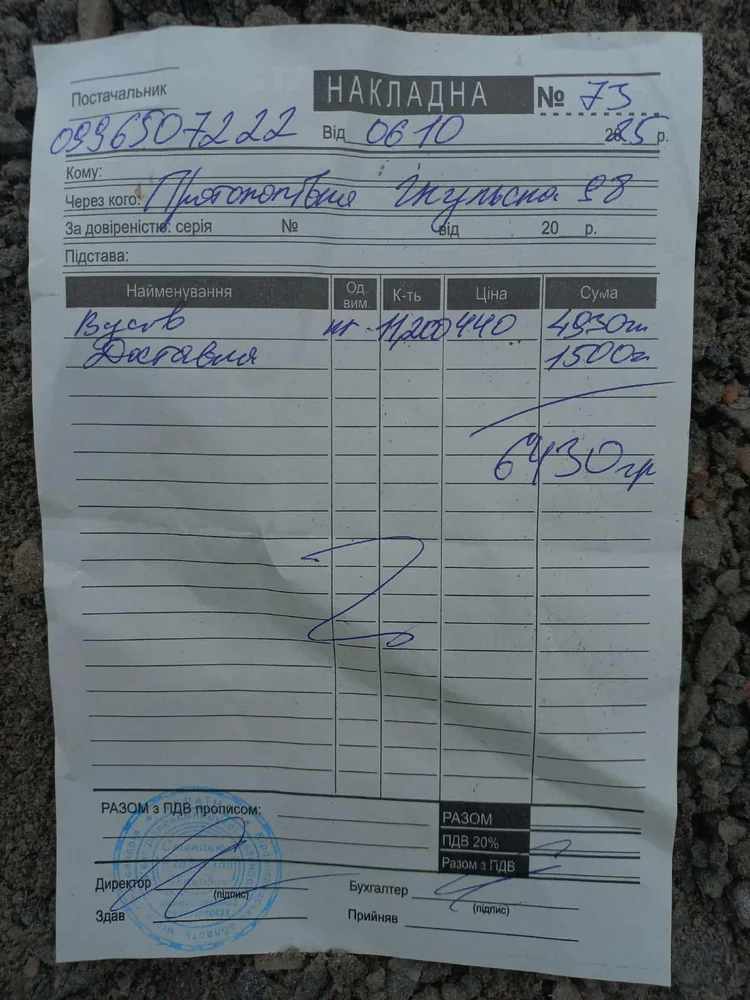 Постачальник
НАКЛАДНА № 73
0996507222 Від 06 10 2025 р.
Кому:
Через кого: Протопопівка Інгульська 98
За довіреністю: серія № від 20 р.
Підстава:
Найменування Од вим. К-ть Ціна Сума
11,200 440 4930
Доставка 1500
6430 гр
РАЗОМ з ПДВ прописом:
РАЗОМ
ПДВ 20%
Разом з ПДВ
Директор (підпис) Бухгалтер (підпис)
Здав Прийняв